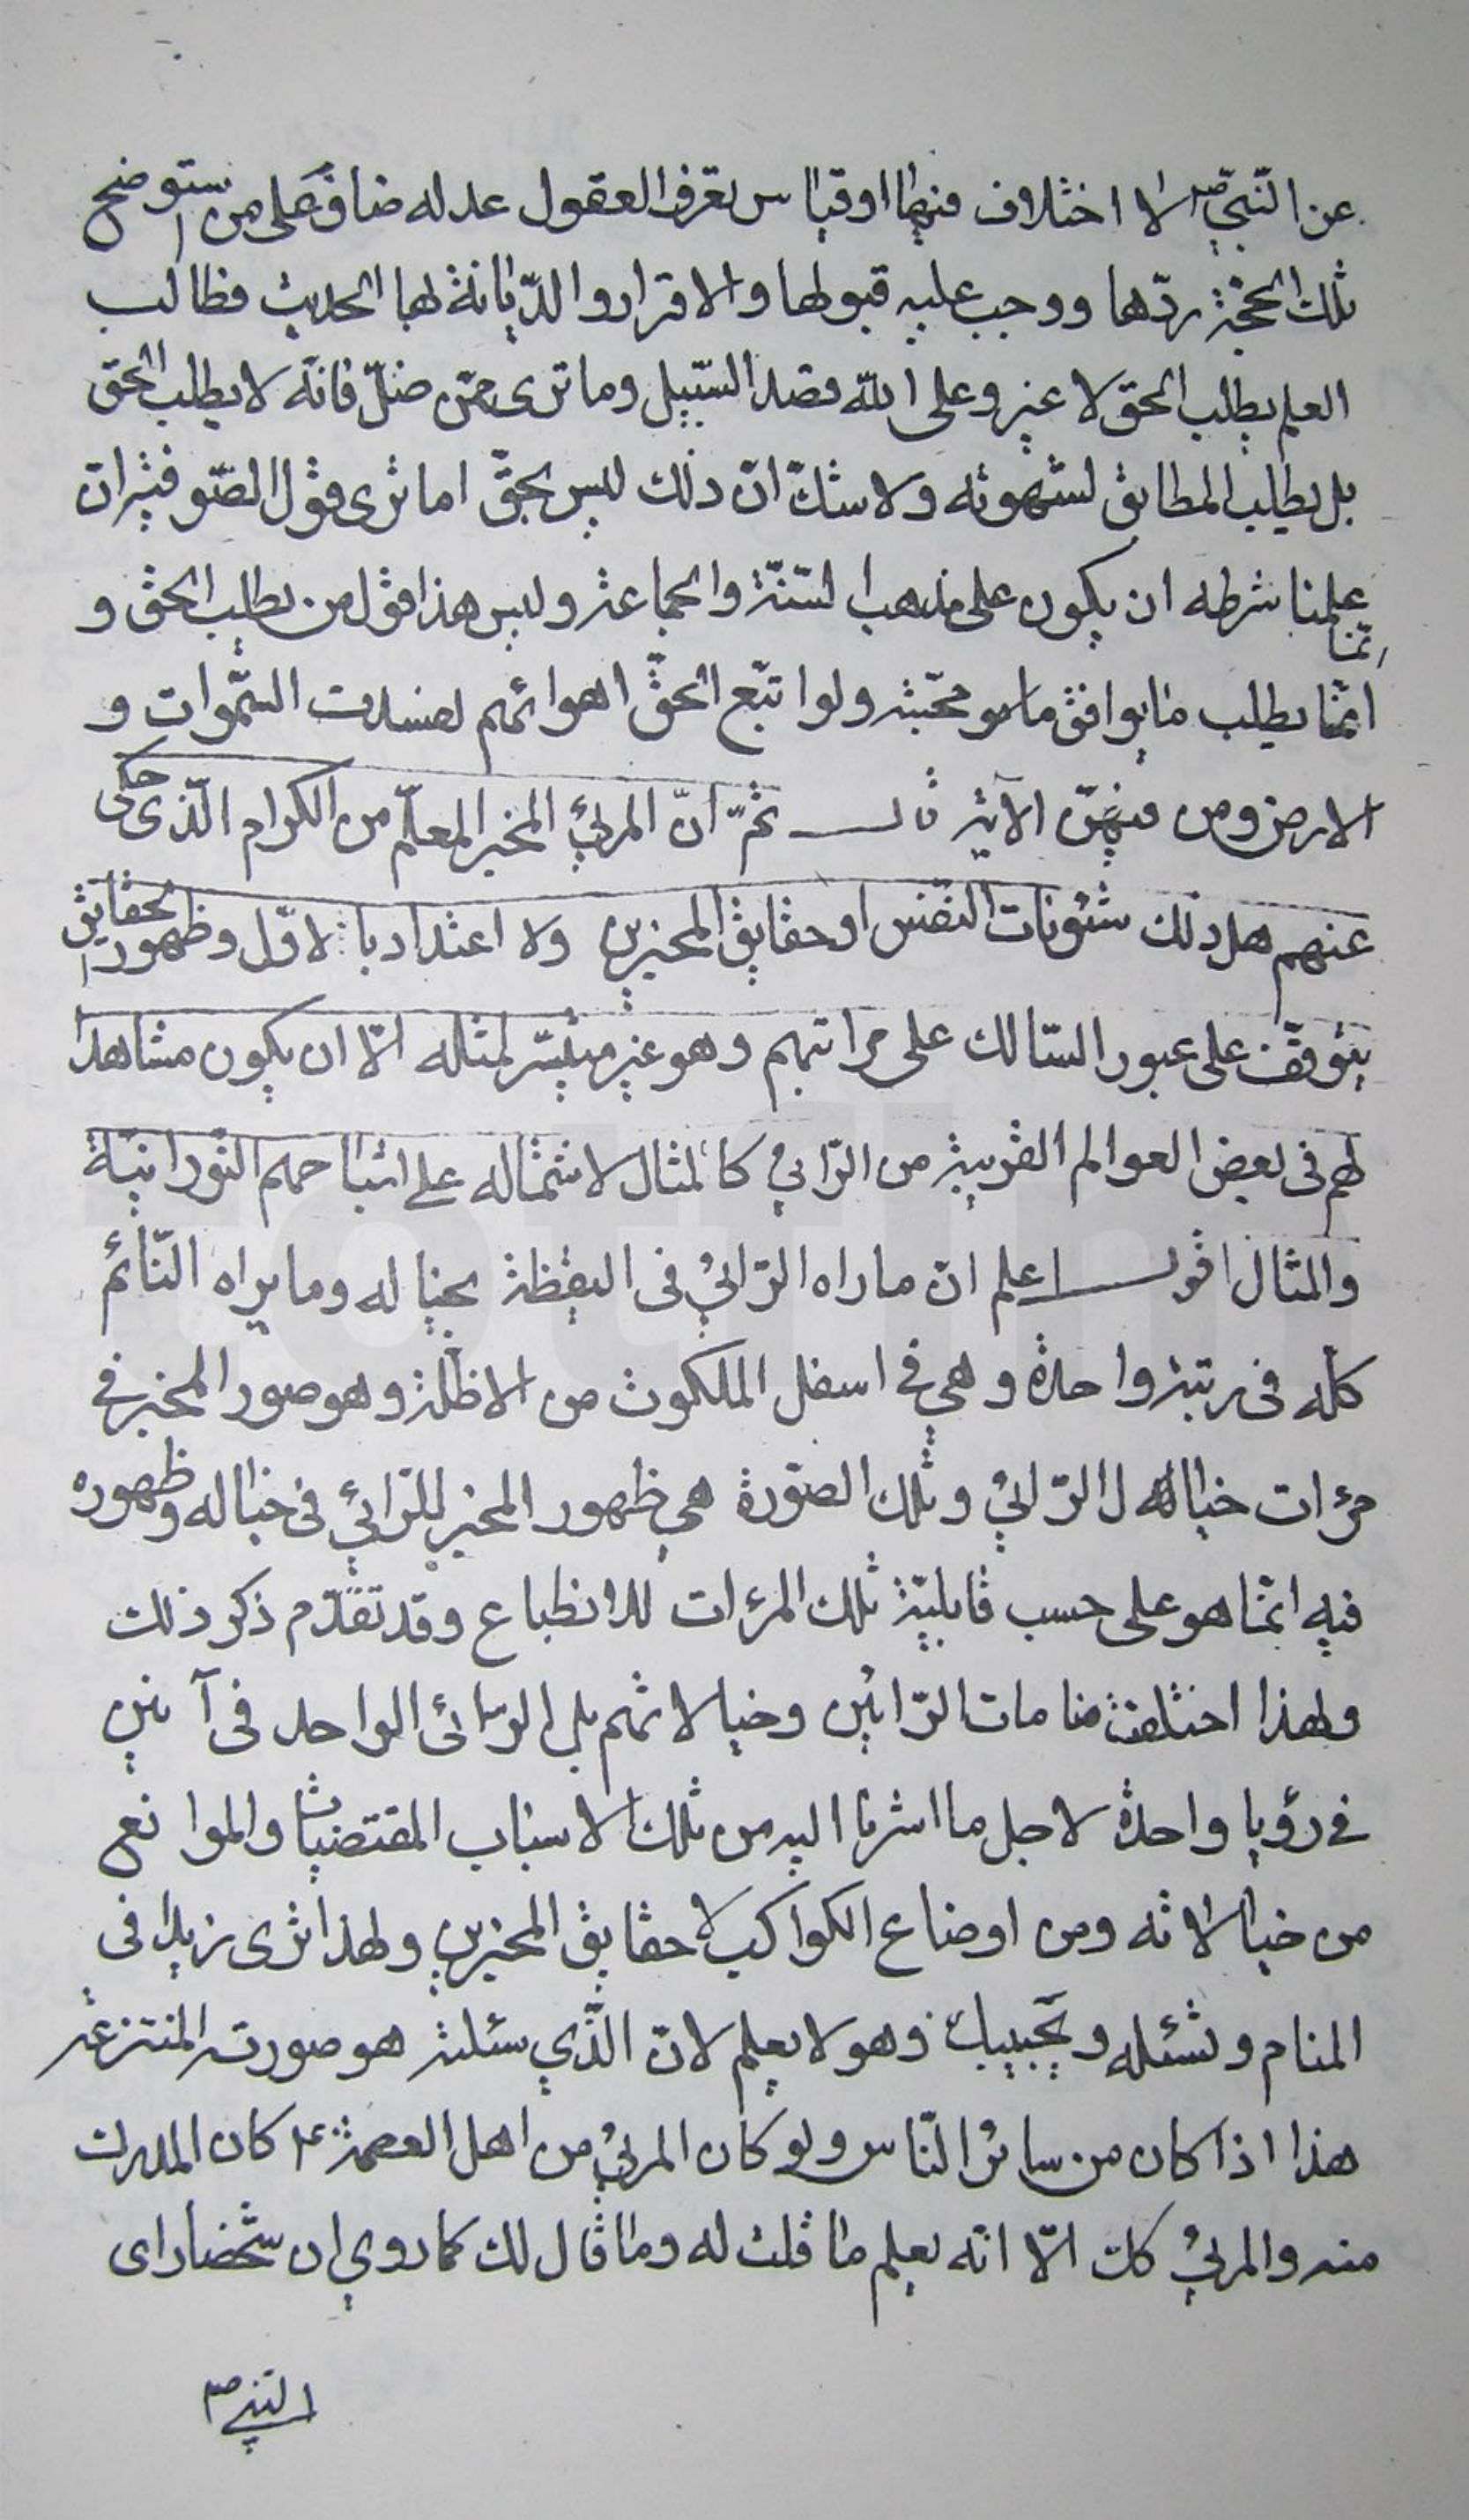 عن النّبيّ ص لا اختلاف فيها او قياس تعرف العقول عدله ضاق على من استوضح
تلك الحجّة ردّها ووجب عليه قبولها والاقرار والدّيانة لها الحديث فطالب
العلم يطلب الحق لا غير وعلى الله قصد السّبيل وما ترى ممّن ضلّ فانّه لا يطلب الحق
بل يطلب المطابق لشهوته ولا شكّ انّ ذلك ليس بحقّ اما ترى قول الصّوفيّة انّ
علمنا شرطه ان يكون على مذهب السّنّة والجماعة وليس هذا قول من يطلب الحق و
انّما
انّما يطلب ما يوافق ما هو محبّته ولو اتّبع الحقّ اهوائهم لفسدت السّموات و
الارض ومن فيهنّ الآية قال ثمّ انّ المرئي المخبر المعلّم من الكرام الّذي حكى
عنهم هل ذلك شئونات النّفس او حقايق المخبرين ولا اعتداد بالاوّل وظهور الحقايق
يتوقّف على عبور السّالك على مراتبهم وهو غير ميسّر لمثله الّا ان يكون مشاهدا
لهم في بعض العوالم القريبة من الرّائي كالمثال لاشتماله على اشباحهم النّورانيّة
والمثال اقول اعلم انّ ما راه الرّائي في اليقظة بخياله وما يراه النّائم
كلّه في رتبة واحدة وهي في اسفل الملكوت من الاظلّة وهو صور المخبر في
مرءات خيال الرّائي وتلك الصّورة هي ظهور المخبر للرّائي في خياله وظهوره
فيه انّما هو على حسب قابليّة تلك المرءات للانطباع وقد تقدّم ذكر ذلك
ولهذا اختلفت منامات الرّائين وخيالاتهم بل الرّائي الواحد في آنين
في رؤيا واحدة لاجل ما اشرنا اليه من تلك الاسباب المقتضيات والموانع
من خيالاته ومن اوضاع الكواكب لا حقايق المخبرين ولهذا ترى زيدا في
المنام وتسئله ويجيبك وهو لا يعلم لانّ الّذي سئلته هو صورته المنتزعة
هذا اذا كان من سائر النّاس ولو كان المرئي من اهل العصمة ع كان المدرك
منه والمرئي كك الّا انّه يعلم ما قلت له وما قال لك كما روي ان شخصا راى
النبي ص